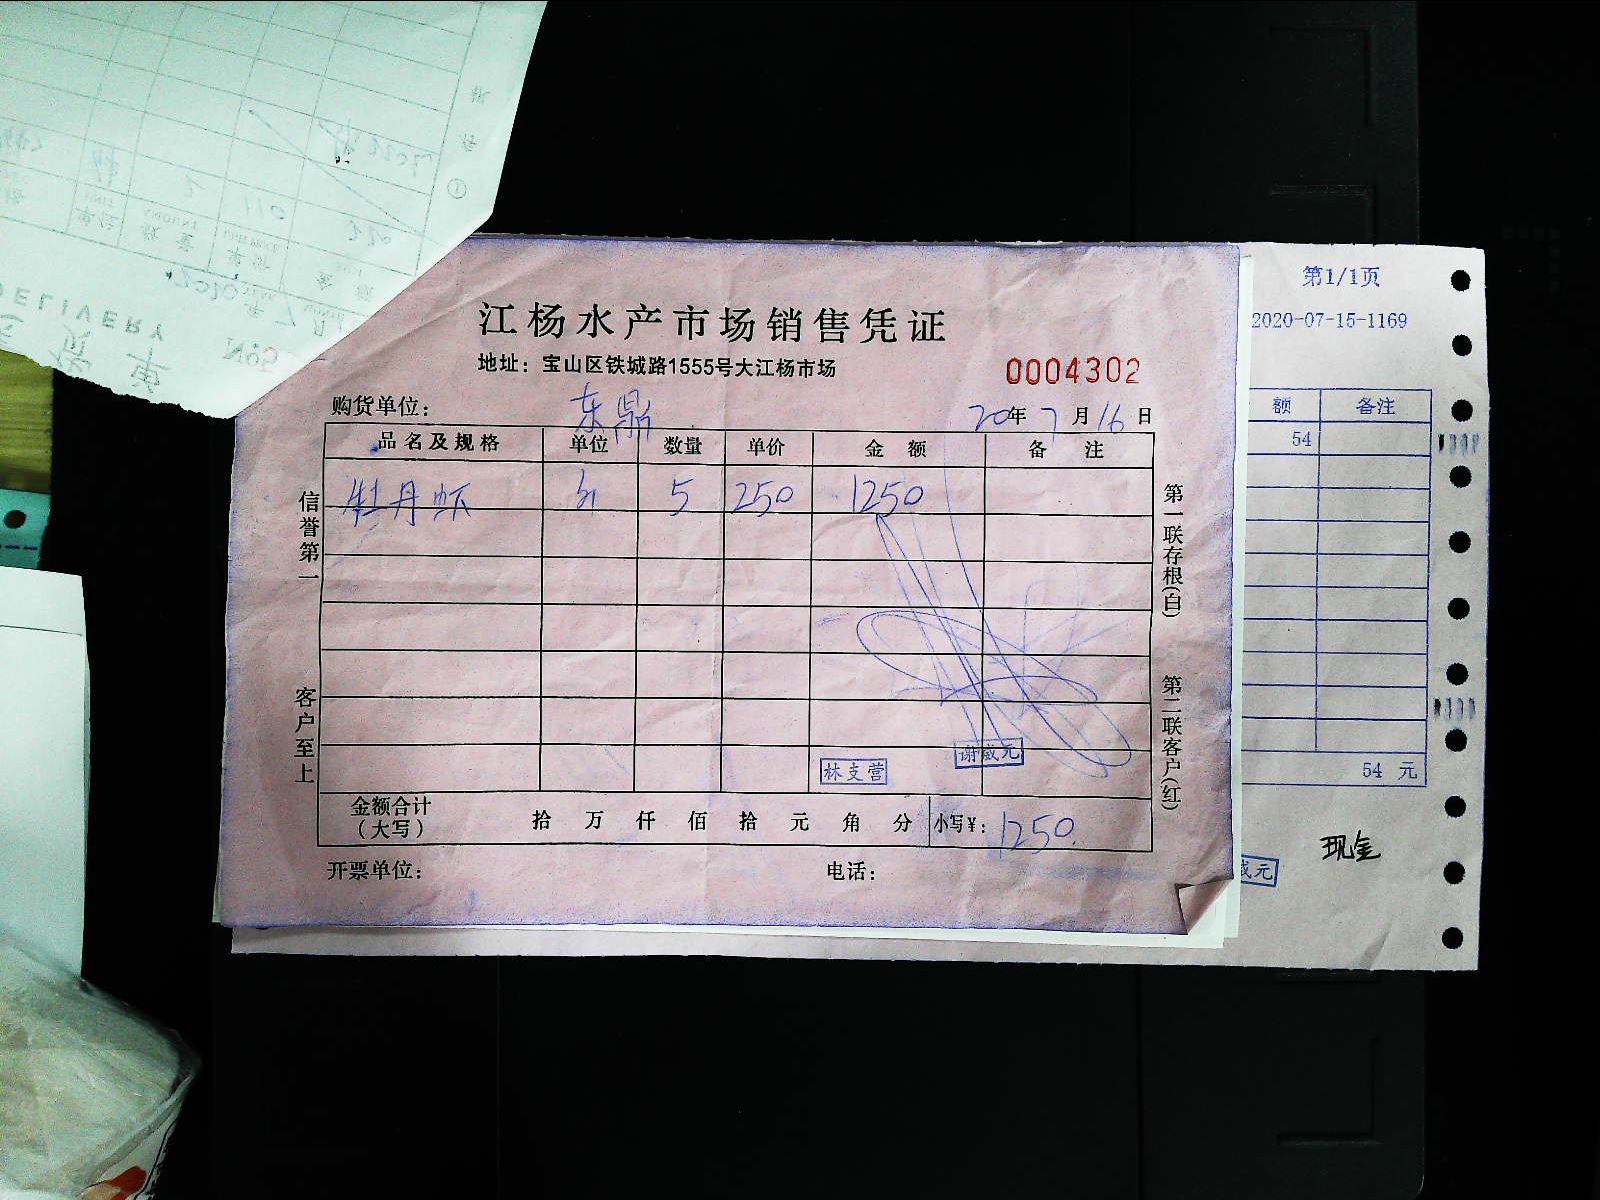 DELIVERY
江杨水产市场销售凭证
地址：宝山区铁城路1555号大江杨市场
0004302
购货单位： 东鼎
20年 7月 16日
品名及规格 单位 数量 单价 金额 备注
牡丹虾 5 250 1250
信誉第一
客户至上
第一联存根(白)
第二联客户(红)
林支营
谢威元
金额合计
（大写）
拾 万 仟 佰 拾 元 角 分 小写¥： 1250.
开票单位： 电话：
第1/1页
2020-07-15-1169
额 备注
54
54 元
现金
威元